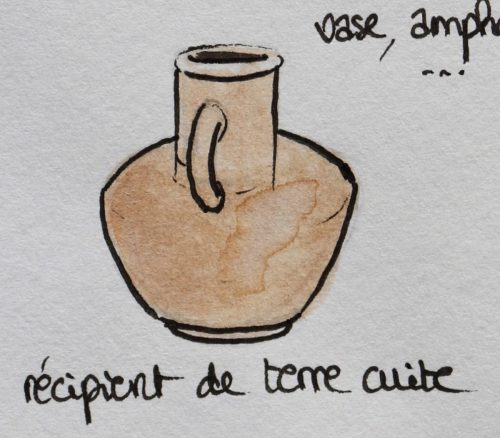 vase,
...
récipient de terre cuite